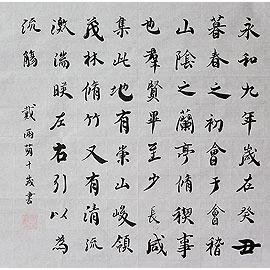 永和九年歲在癸丑
暮春之初會于會稽
山陰之蘭亭脩稧事
也羣賢畢至少長咸
集此地有崇山峻領
茂林脩竹又有清流
激湍暎左右引以為
流觴
戴雨萌十歲書